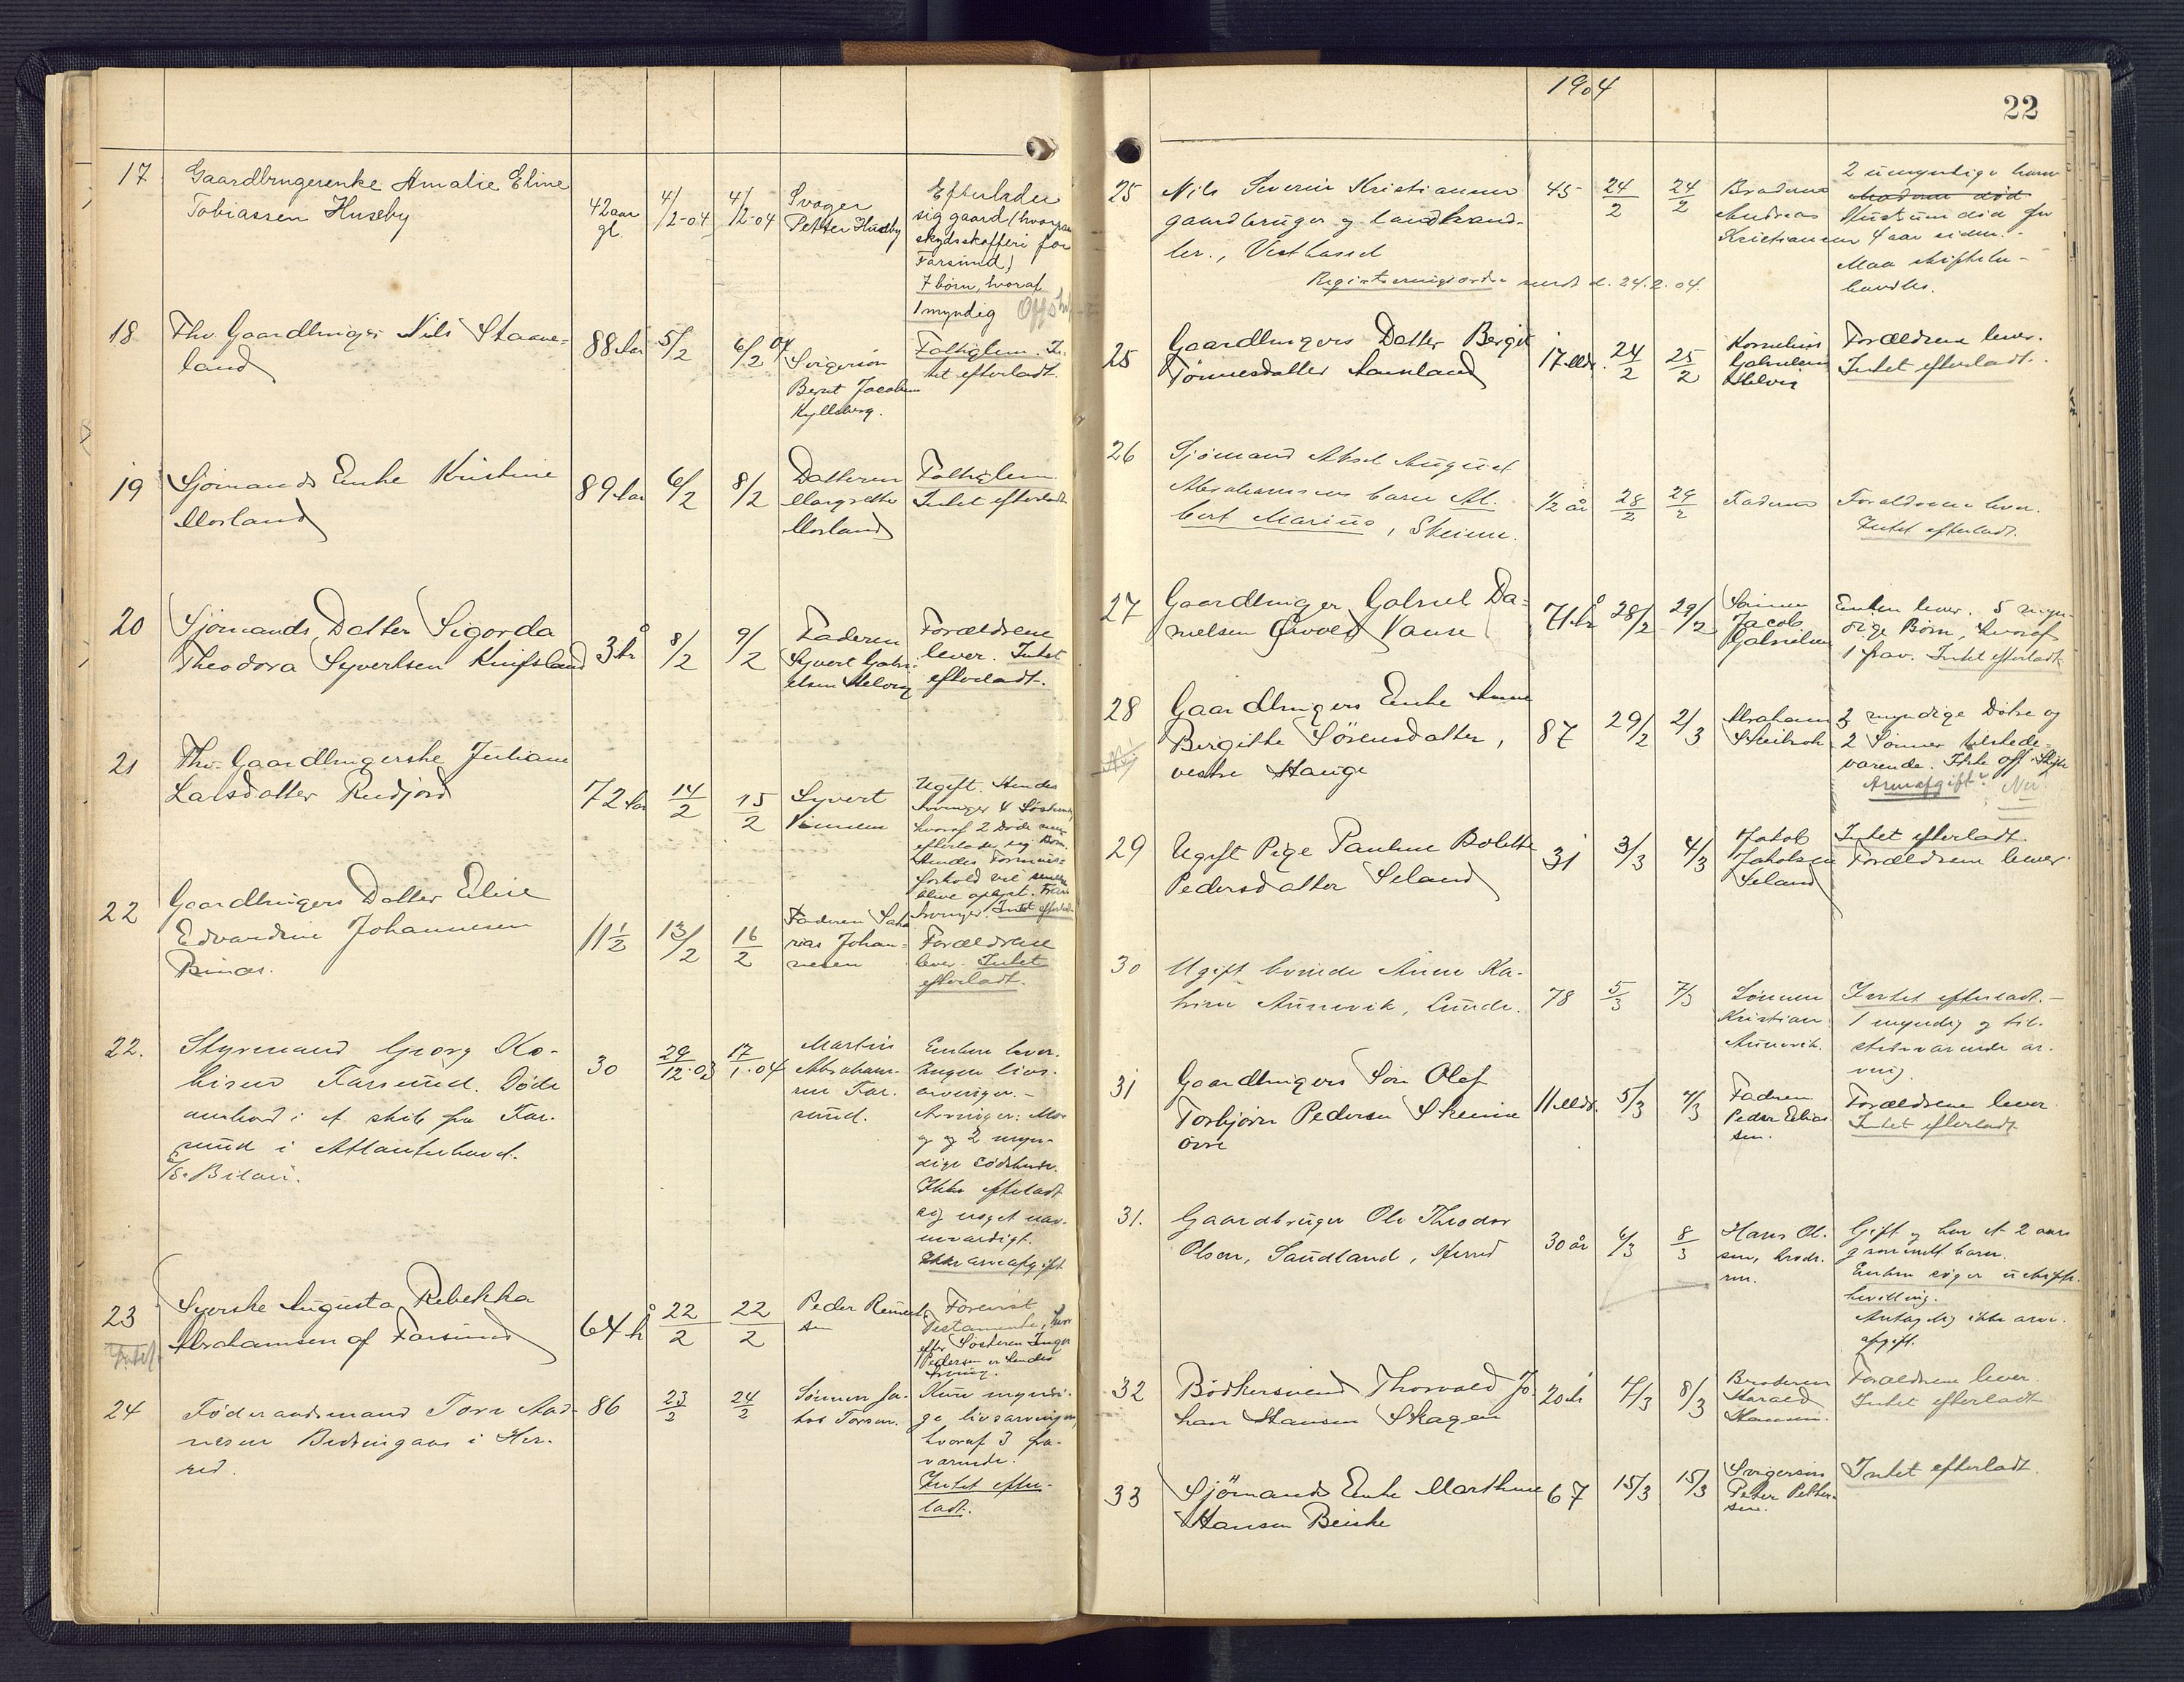 17 Gaardbrugerenke Amalie Eline
Tobiassen Huseby
42 aar
gl.
4/2-04
4/2-04
Svoger
Petter Huseby
Efterlader
sig gaard (hvorpaa
skydsskafferi for
Farsund)
7 börn, hvoraf
1 myndig
18 Fhv. Gaardbruger Nils Staave-
land
88 Aar
5/2
6/2 04
Svigersön
Bernt Jacobsen
Kyllesberg.
Fattiglem. In-
tet efterladt.
19 Sjömands Enke Kristine
Morland
89 Aar
6/2
8/2
Datteren
Margrethe
Morland
Fattiglem
Intet efterladt
20 Sjömands Datter Sigorda
Theodora Syvertsen Knifsland
3 År
8/2
9/2
Faderen
Syvert Gabri-
elsen Helvig
Forældrene
lever. Intet
efterladt.
21 Fhv. Gaardbrugerske Juliane
Larsdatter Rudjord
72 Aar
14/2
15/2
Syvert
Ugift. Hendes
Arvinger 4 Söskende
hvoraf 2 Döde
efterlade sig Börn.
Hendes Formues-
forhold vil senere
blive oplyst.
Arvinger. Intet efterladt
22 Gaardbrugers Datter Elise
Edvardine Johannesen
11 1/2
13/2
16/2
Faderen Saka-
rias Johan-
nesen
Forældrene
lever. Intet
efterladt.
22. Styrmand Georg
Farsund. Döde
ombord i et skib fra Far-
sund i Atlanterhavet.
30
29/12-03
17/1-04
Martin
Abraham-
sen Far-
sund.
Enken lever.
Ingen livs-
arvinger.-
Arvinger: Mor
og 2 myn-
dige södskende.
Ikke efterladt
sig noget næv-
neværdigt.
Ikke arveafgift
23 Syerske Augusta Rebekka
Abrahamsen af Farsund
64 År
22/2
22/2
Peder Reinert-
sen
Testamente, hvor-
efter Sösteren Inger
Pedersen er hendes
Arving.
24 Föderaadsmand Tore Aad-
nesen Bedringaas i Her-
red.
86
23/2
24/2
Sönnen Ja-
kob Torsen.
Kun myndi-
ge livsarvinger,
hvoraf 3 fra-
værende.
Intet efter-
ladt.
1904
22
25 Nils Severin Kristiansen
gaardbruger og landhand-
ler, Vesthassel
Registreringsordre sendt d. 24.2.04.
45
24/2
24/2
Broderen
Andreas
Kristiansen
2 umyndige børn
Moderen död
Hustruen död for
4 aar siden.-
Maa skiftebe-
handles.
25 Gaardbrugers Datter Bergit
Tönnesdatter Aaneland
17 Mdr.
24/2
25/2
Kornelius
Gabrielsen
Helvig
Forældrene lever.
Intet efterladt.
26 Sjömand Aksel August
Abrahamsens barn Al-
bert Marius, Skeime.
1/2 år
28/2
29/2
Faderen
Forældrene lever.
Intet efterladt.
27 Gaardbruger Gabriel Da-
nielsen Ørvold Vanse
71 År
28/2
29/2
Sönnen
Jacob
Gabrielsen
Enken lever. 5 myn-
dige Börn, hvoraf
1 frav. Intet efterladt
28 Gaardbrugers Enke Anne
Birgitte Sörensdatter,
vestre Hauge
87
29/2
2/3
Abraham
3 myndige Dötre og
2 Sönner tilstede-
værende. Ikke off. Skifte
Arveafgift? Nei
29 Ugift Pige Pauline Bolette
Pedersdatter Seland
31
3/3
4/3
Jakob
Jakobsen
Seland
Intet efterladt
Forældrene lever.
30 Ugift kvinde Anne Ka-
trine Aunevik, Lunde.
78
5/3
7/3
Sönnen
Kristian
Aunevik.
Intet efterladt.-
1 myndig og til-
stedeværende ar-
ving.
31 Gaardbrugers Sön Olef
Torbjörn Pedersen Skeime
övre
11 Mdr.
5/3
7/3
Faderen
Peder Elias-
sen.
Forældrene lever
Intet efterladt
31. Gaardbruger Ole Theodor
Olsen, Sandland, Herred
30 år
6/3
8/3
Hans Ol-
sen, brode-
ren.
Gift og har et 2 aars
gammelt barn.
Enken söger uskifte-
bevilling.
Antagelig ikke arve-
afgift.
32 Bödkersvend Thorvald Jo-
han Hansen Skagen
20 År
7/3
8/3
Broderen
Harald
Hansen.
Forældrene lever.
Intet efterladt
33 Sjömands Enke Marthine
Hansen Beiske
67
15/3
15/3
Svigersön
Peter Petter-
sen.
Intet efterladt.